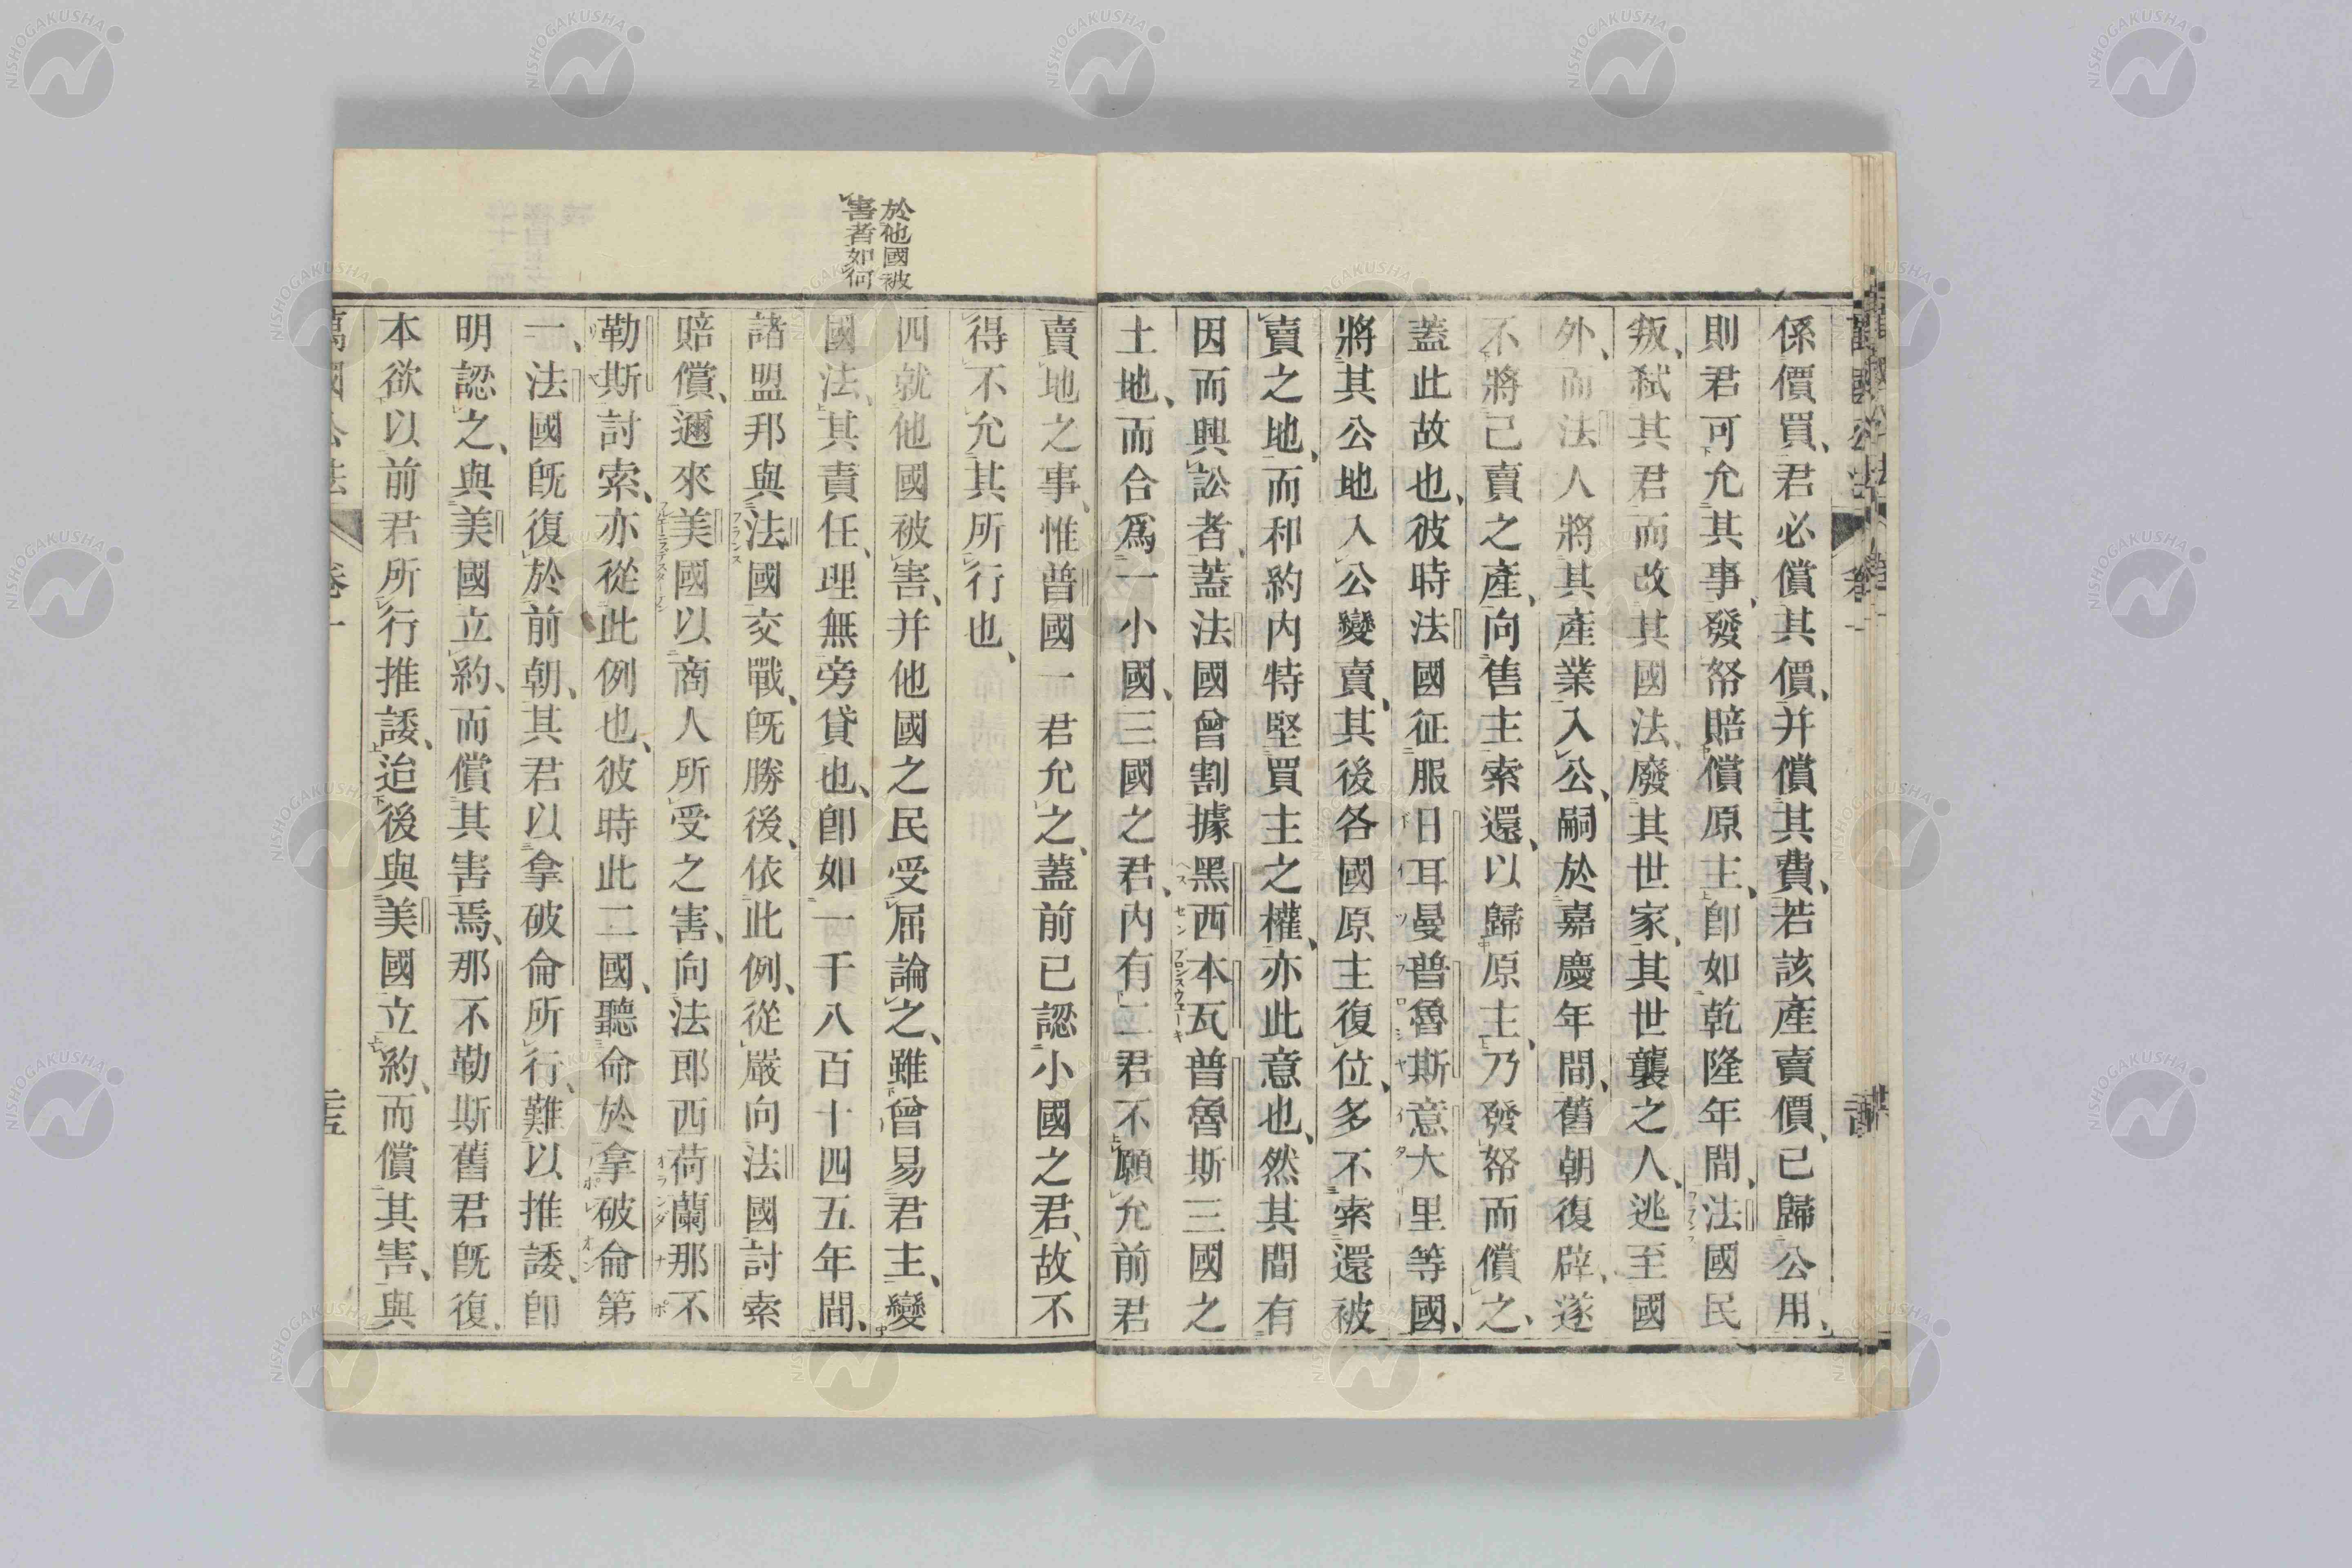 係價買、君必償其價、并償其費、若該產賣價、已歸公用、
則君可允其事、發帑賠償原主、卽如乾隆年間、法國民
叛、弒其君而改其國法、廢其世家、其世襲之人、逃至國
外、而法人將其產業入公、嗣於嘉慶年間、舊朝復辟、遂
不將已賣之產、向售主索還、以歸原主、乃發帑而償之、
蓋此故也、彼時法國征服日耳曼普魯斯意大里等國、
將其公地入公變賣、其後各國原主復位、多不索還被
賣之地、而和約內特堅買主之權、亦此意也、然其間有
因而興訟者、蓋法國曾割據黑西本瓦普魯斯三國之
土地、而合爲一小國、三國之君、內有二君不願允前君
賣地之事、惟普國一君允之、蓋前已認小國之君、故不
得不允其所行也、
於他國被
害者如何
四就他國被害、并他國之民受屈論之、雖曾易君主、變
國法、其責任、理無旁貸也、卽如一千八百十四五年間、
諸盟邦與法國交戰、旣勝後、依此例、從嚴向法國討索
賠償、邇來美國以商人所受之害、向法郎西荷蘭那不
勒斯討索、亦從此例也、彼時此二國、聽命於拿破侖第
一、法國旣復於前朝、其君以拿破侖所行、難以推諉、卽
明認之、與美國立約、而償其害焉、那不勒斯舊君旣復、
本欲以前君所行推諉、迨後與美國立約、而償其害、與
萬國公法 卷一 二五